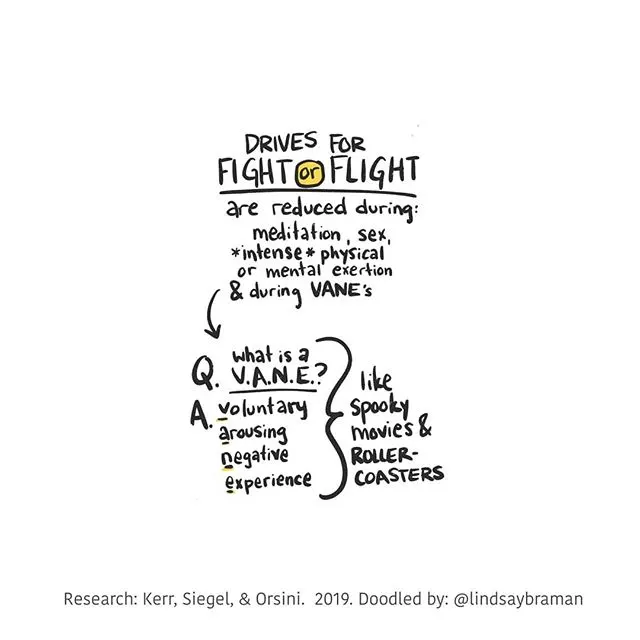 DRIVES FOR
FIGHT or FLIGHT
are reduced during:
meditation, sex,
*intense* physical
or mental exertion
& during VANE's
Q. what is a
V.A.N.E.?
A. voluntary
arousing
negative
experience
like
spooky
movies &
ROLLER-
COASTERS
Research: Kerr, Siegel, & Orsini. 2019. Doodled by: @lindsaybraman